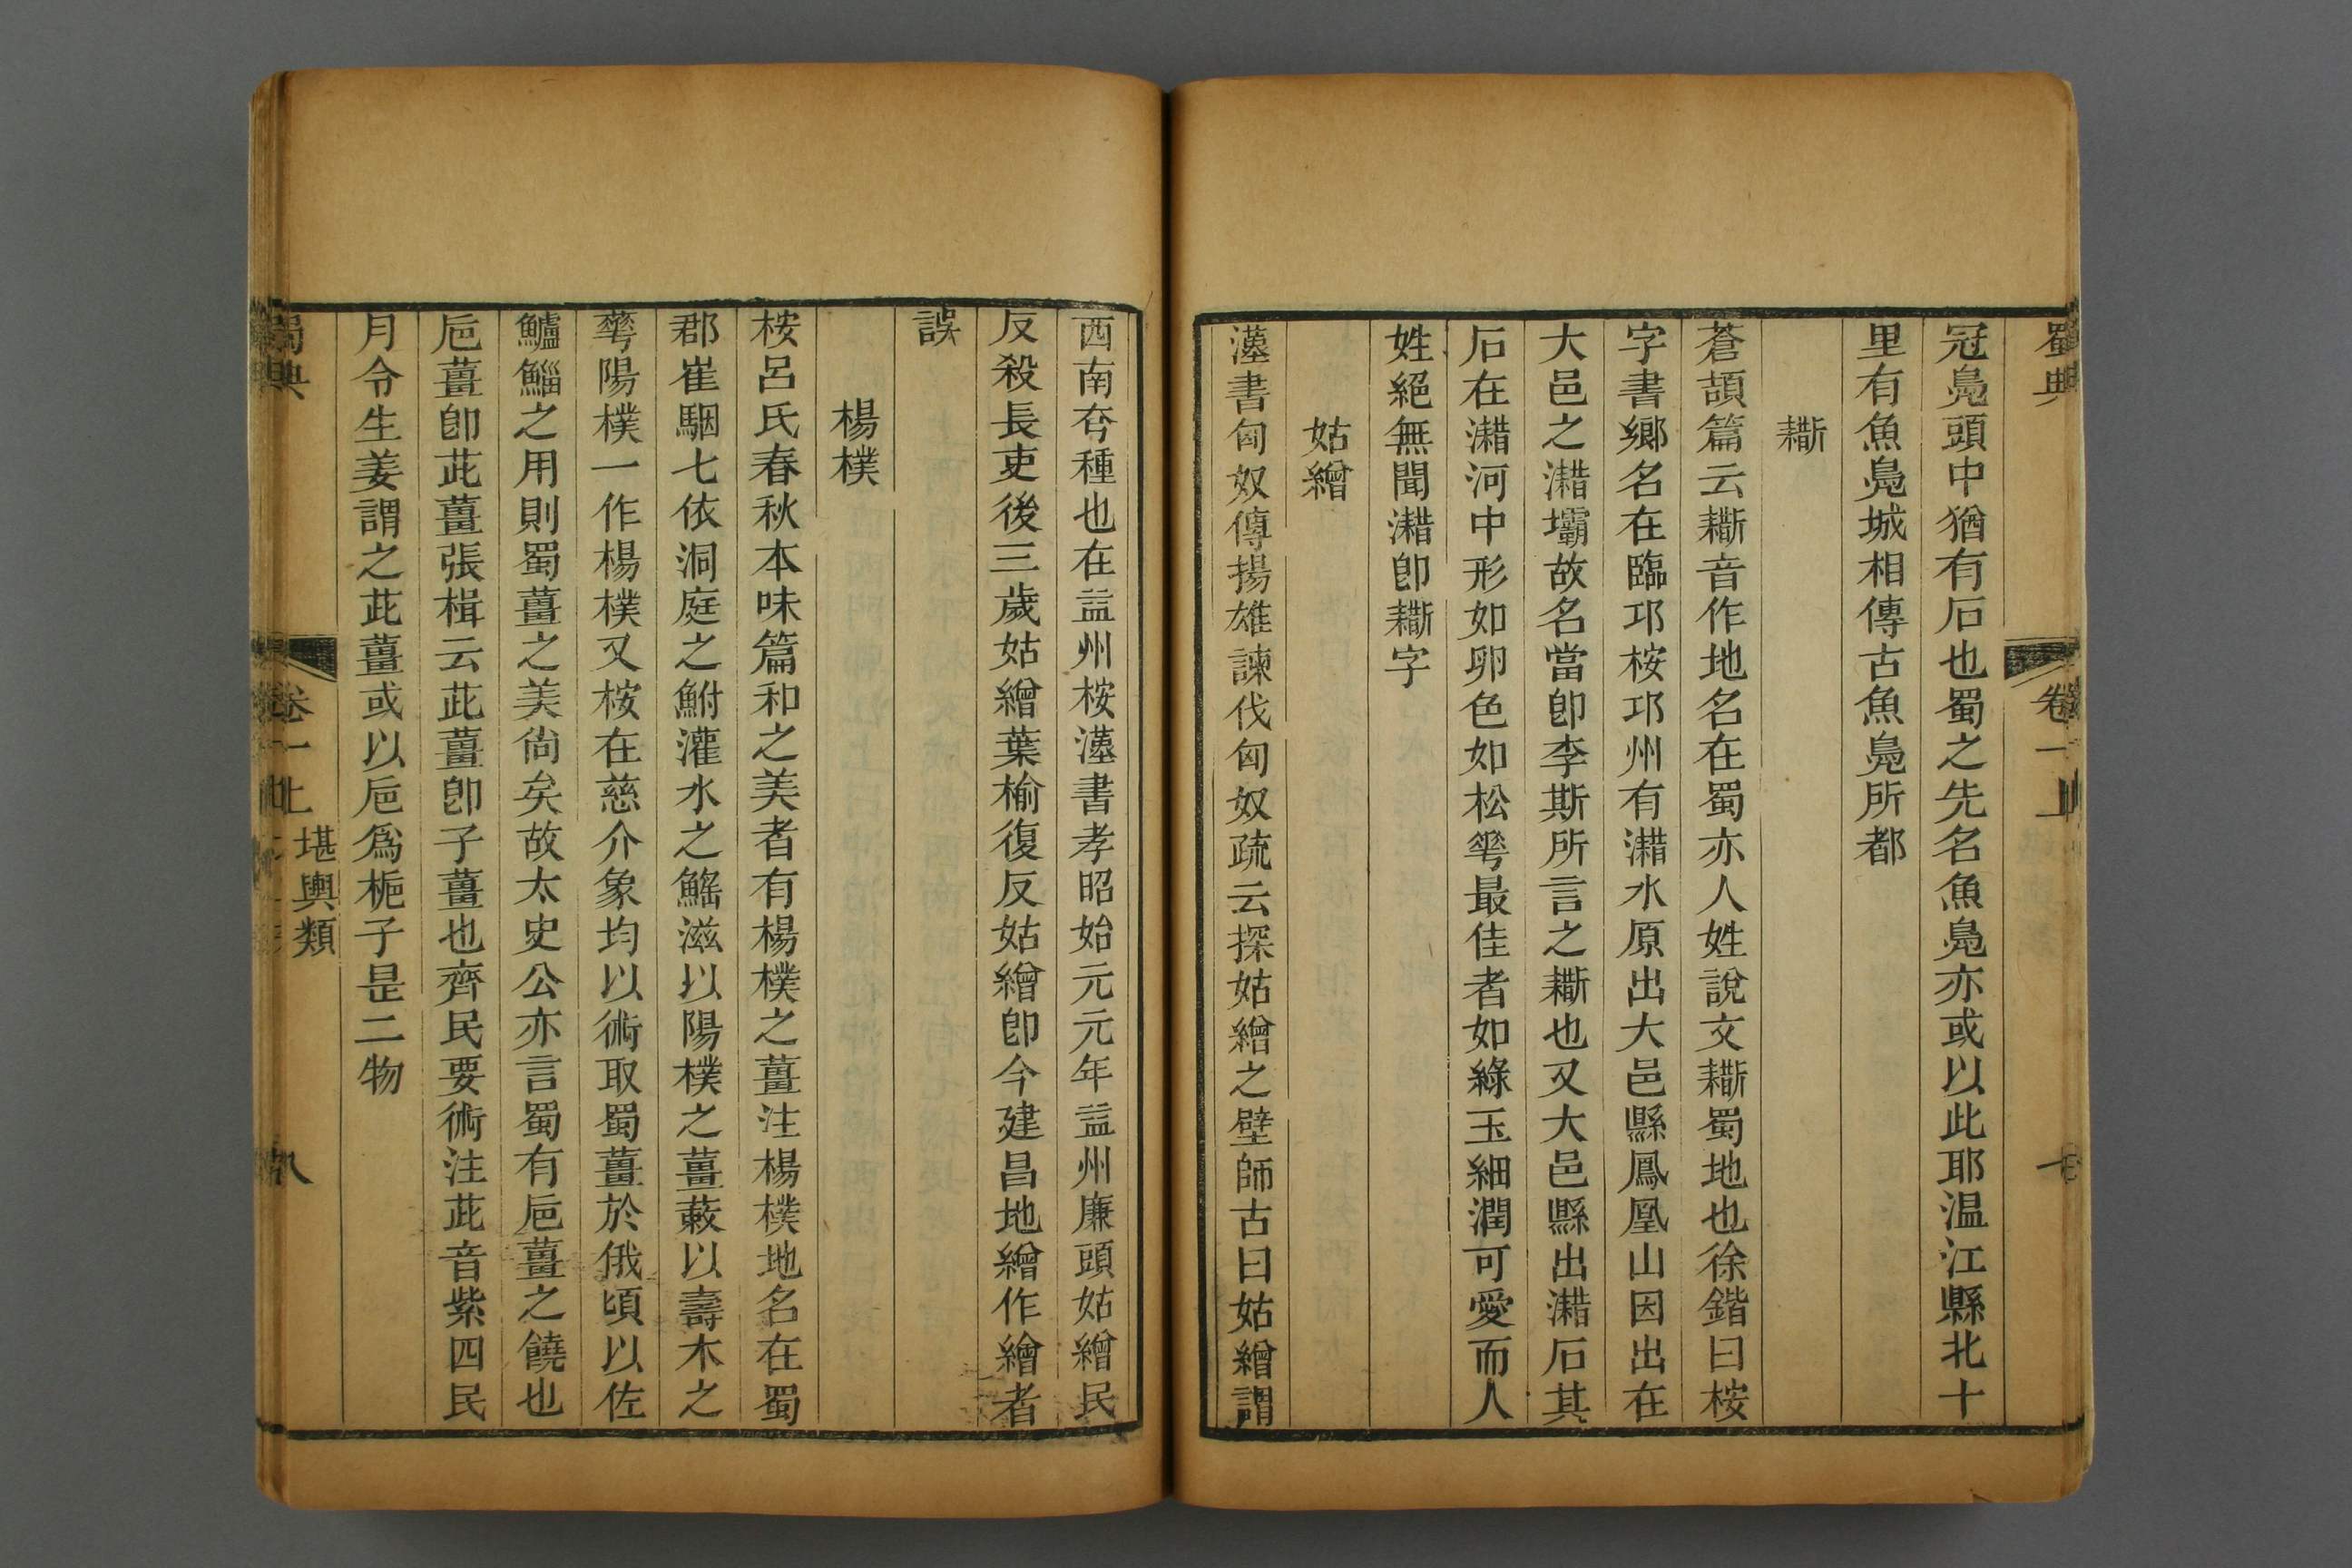 蜀典
卷一上
冠鳧頭中猶有石也蜀之先名魚鳧亦或以此耶温江縣北十
里有魚鳧城相傳古魚鳧所都
䎰
蒼頡篇云䎰音作地名在蜀亦人姓說文䎰蜀地也徐鍇曰桉
字書鄉名在臨邛桉邛州有㵶水原出大邑縣鳳凰山因出在
大邑之㵶壩故名當卽李斯所言之䎰也又大邑縣出㵶石其
石在㵶河中形如卵色如松䔢最佳者如綠玉細潤可愛而人
姓絕無聞㵶卽䎰字
姑繒
漢書匈奴傳揚雄諫伐匈奴疏云探姑繒之壁師古曰姑繒謂
西南夸種也在益州桉漢書孝昭始元元年益州廉頭姑繒民
反殺長吏後三歲姑繒葉榆復反姑繒卽今建昌地繒作繪者
誤
楊樸
桉呂氏春秋本味篇和之美者有楊樸之薑注楊樸地名在蜀
郡崔駰七依洞庭之鮒灌水之鰩滋以陽樸之薑蔌以壽木之
䔢陽樸一作楊樸又桉在慈介象均以術取蜀薑於俄頃以佐
鱸鯔之用則蜀薑之美尙矣故太史公亦言蜀有巵薑之饒也
巵薑卽茈薑張楫云茈薑卽子薑也齊民要術注茈音紫四民
月令生姜謂之茈薑或以巵爲梔子是二物
蜀典
卷一上
堪輿類
八